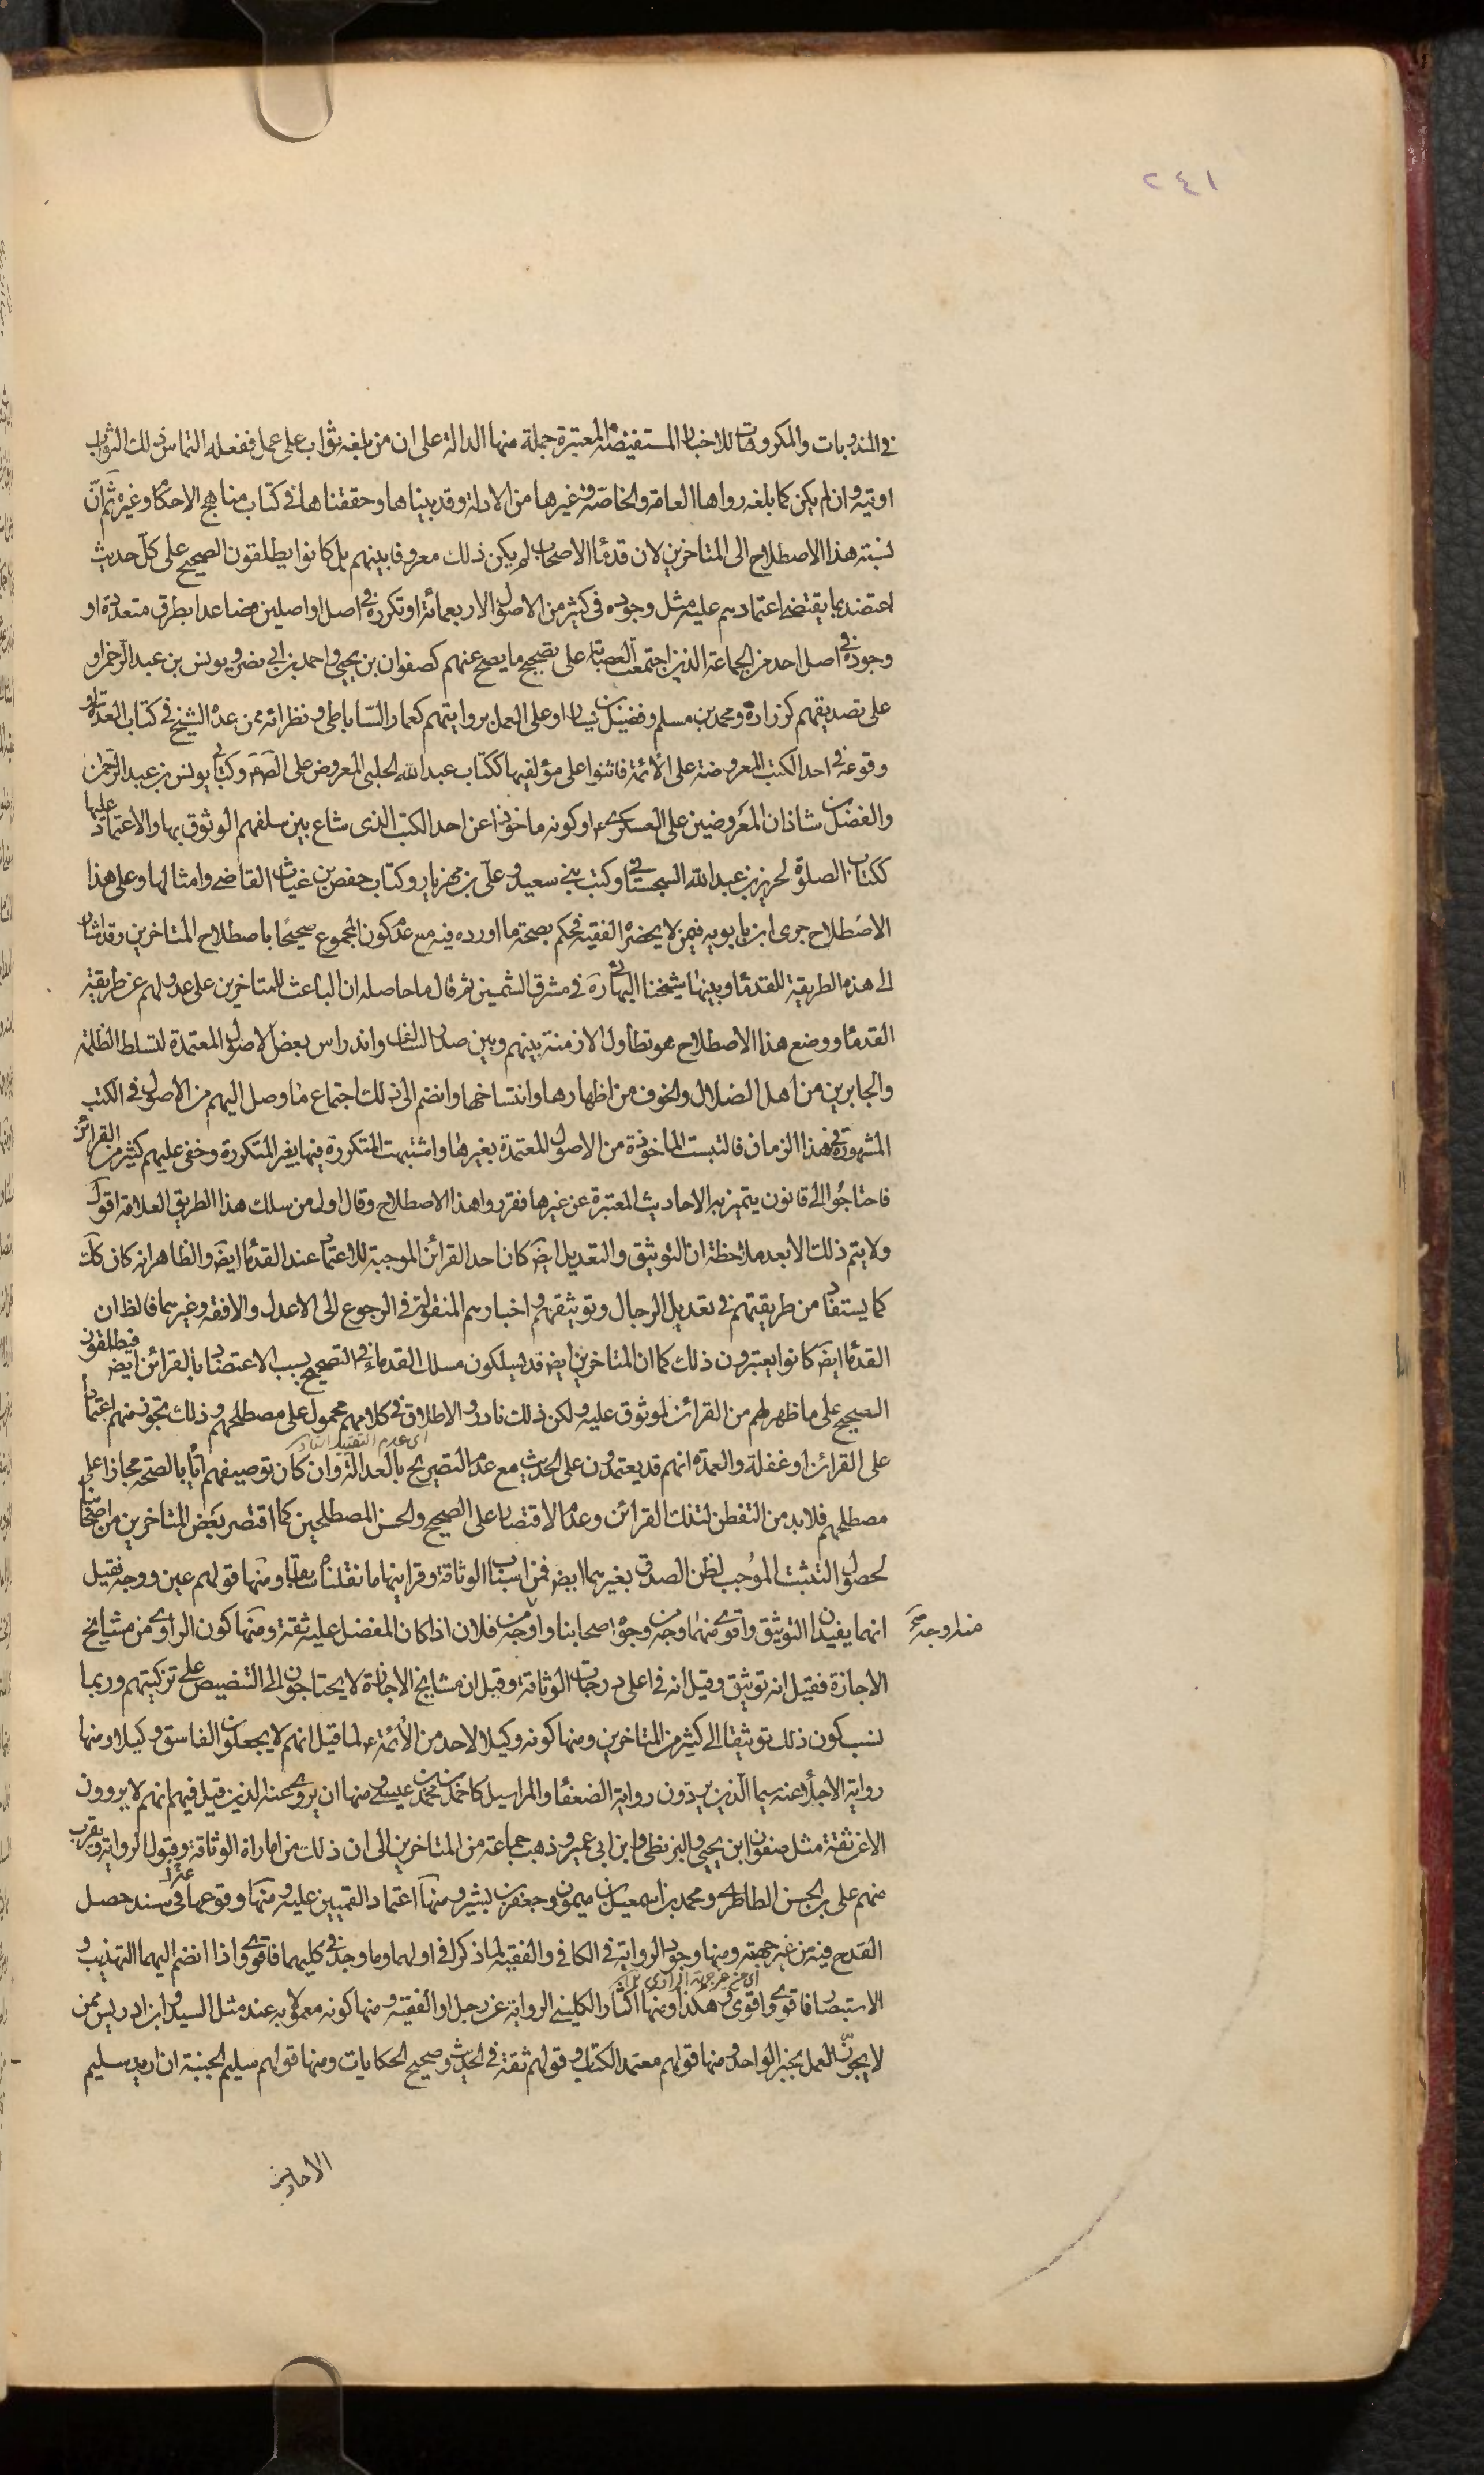 ٢٤١
في المندوبات والمكروهات للاخبار المستفيضة المعتبرة جملة منها الدالة على ان من بلغه ثواب على عمل ففعله التماس ذلك الثواب
اوتيه وان لم يكن كما بلغه رواها العامة والخاصة وغيرها من الادلة وقد بيناها وحققناها في كتاب مناهج الاحكام وغيره ثم انّ
نسبته هذا الاصطلاح الى المتاخرين لان قدماء الاصحاب لم يكن ذلك معروفا بينهم بل كانوا يطلقون الصحيح على كل حديث
اعتضد بما يقتضي اعتمادهم عليه مثل وجوده في كثير من الاصول الاربعمائة او تكرره في اصل او اصلين فصاعدا بطرق متعددة او
وجوده في اصل احد من الجماعة الذين اجتمعت العصابة على تصحيح ما يصح عنهم كصفوان بن يحيى واحمد بن ابي نصر ويونس بن عبد الرحمن او
على تصديقهم كزرارة ومحمد بن مسلم وفضيل بن يسار او على العمل بروايتهم كعمار السّاباطي ونظرائه ممن عده الشيخ في كتاب العدة او
وقوعه في احد الكتب المعروضة على الائمة فاثنوا على مؤلفيها ككتاب عبد الله الحلبي المعروض على الصادق وكتابي يونس بن عبد الرحمن
والفضل بن شاذان المعروضين على العسكري ع او كونه ماخوذا عن احد الكتب الذي شاع بين سلفهم الوثوق بها والاعتماد عليها
ككتاب الصلوة لحريز بن عبد الله السجستاني وكتب بني سعيد وعلي بن مهزيار وكتاب حفص بن غياث القاضي وامثالها وعلى هذا
الاصطلاح جرى ابن بابويه في من لا يحضره الفقيه فحكم بصحة ما اورده فيه مع عدم كون المجموع صحيحا باصطلاح المتاخرين وقد اشار
الى هذه الطريقة للقدماء وبينها شيخنا البهائي ره في مشرق الشمسين ثم قال ما حاصله ان الباعث للمتاخرين على عدولهم عن طريقة
القدماء ووضع هذا الاصطلاح هو تطاول الازمنة بينهم وبين صدر السالف واندراس بعض الاصول المعتمدة لتسلط الظلمة
والجابرين من اهل الضلال والخوف من اظهارها وانتساخها وانضم الى ذلك اجتماع ما وصل اليهم من الاصول في الكتب
المشهورة في هذا الزمان فالتبست الماخوذة من الاصول المعتمدة بغيرها واشتبهت المتكررة فيها بغير المتكررة وخفى عليهم كثير من القرائن
فاحتاجوا الى قانون يتميز به الاحاديث المعتبرة عن غيرها فقرروا هذا الاصطلاح وقال اول من سلك هذا الطريق العلامة اقول
ولا يتم ذلك الا بعد ملاحظة ان التوثيق والتعديل ايض كان احد القرائن الموجبة للاعتماد عند القدماء ايض والظاهر انه كان كك
كما يستفاد من طريقتهم في تعديل الرجال وتوثيقهم واخبارهم المنقولة في الرجوع الى الاعدل والافقه وغيرهما فالظ ان
القدماء ايض كانوا يعتبرون ذلك كما ان المتاخرين ايض قد يسلكون مسلك القدماء في التصحيح بسبب الاعتضاد بالقرائن ايض فيطلقون
الصحيح على ما ظهر لهم من القرائن لموثوق عليه ولكن ذلك نادر والاطلاق في كلامهم محمول على مصطلحهم وذلك تجوز منهم اعتمادا
على القرائن او غفلة والعمدة انهم قد يعتمدون على الحديث مع عدم التصريح بالعدالة وان كان توصيفهم اياه بالصحة مجازا على
مصطلحهم فلا بد من التفطن لتلك القرائن وعدم الاقتصار على الصحيح والحسن المصطلحين كما اقتصر بعض المتاخرين من اصحابنا
لحصول التثبت الموجب لظن الصدق بغيرهما ايض فمن اسباب الوثاقة وقرائنها ما نقلناه سابقا ومنها قولهم عين ووجه فقيل
انهما يفيدان التوثيق واقوى منهما وجه من وجوه اصحابنا واوجه من فلان اذا كان المفضل عليه ثقة ومنها كون الراوي من مشايخ
الاجازة فقيل انه توثيق وقيل انه في اعلى درجات الوثاقة وقيل ان مشايخ الاجازة لا يحتاجون الى التنصيص على تزكيتهم وربما
نسب كون ذلك توثيقا الى كثير من المتاخرين ومنها كونه وكيلا لاحد من الائمة ع لما قيل انهم لا يجعلون الفاسق وكيلا ومنها
رواية الاجلاء عنه سيما الذين يردون رواية الضعفاء والمراسيل كاحمد بن محمد بن عيسى ومنها ان يروي عنه الذين قيل فيهم انهم لا يروون
الا عن ثقة مثل صفوان ابن يحيى والبزنطي وابن ابي عمير وذهب جماعة من المتاخرين الى ان ذلك من اماراة الوثاقة وقبول الرواية ويقرب
منهم علي بن الحسن الطاطري ومحمد بن اسمعيل بن ميمون وجعفر بن بشير ومنها اعتماد القميين عليه ومنها وقوعها في سند حصل
القدح فيه من غير جهته ومنها وجود الرواية في الكافي والفقيه لما ذكرا في اولهما وما وجد في كليهما فاقوى واذا انضم اليهما التهذيب و
الاستبصار فاقوى واقوى وهكذا ومنها اكثار الكليني الرواية عن رجل او الفقيه ومنها كونه معمولا به عند مثل السيد وابن ادريس ممن
لا يجوّز العمل بخبر الواحد ومنها قولهم معتمد الكتاب وقولهم ثقة في الحديث وصحيح الحكايات ومنها قولهم سليم الجنبة ان اريد سليم
الاحاديث